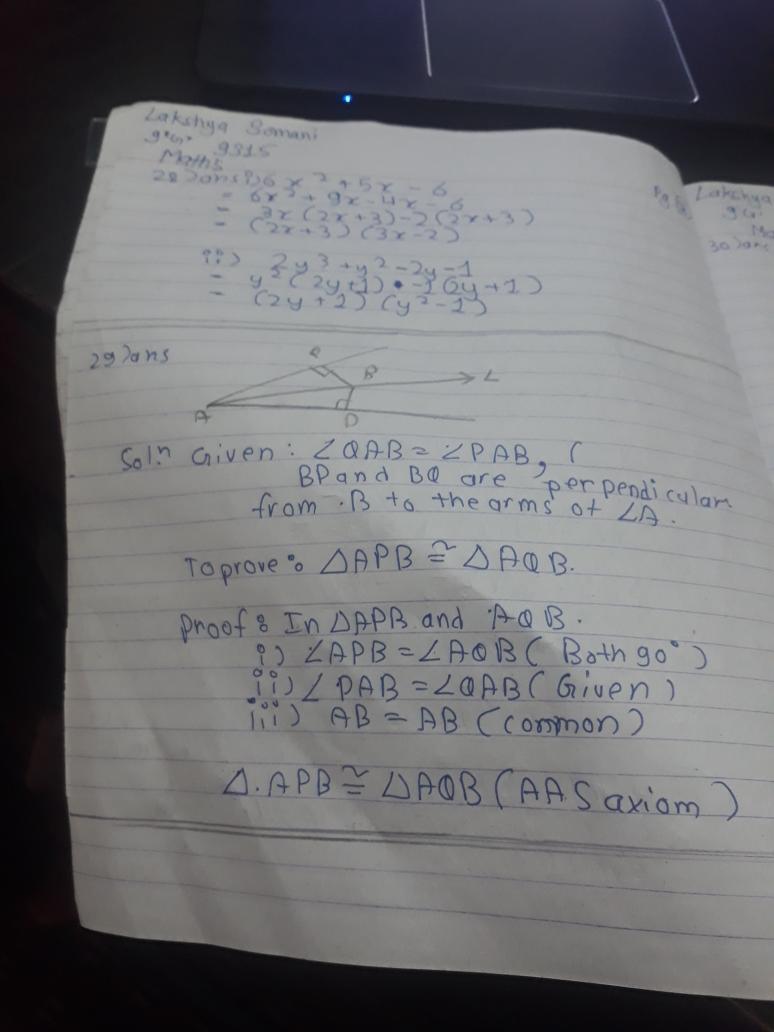 Lakshya Somani
9315
Maths
28) ans i) 6x² + 5x - 6
= 6x² + 9x - 4x - 6
= 3x (2x+3) -2 (2x+3)
= (2x+3) (3x-2)
ii) 2y³ + y² - 2y - 1
= y² (2y+1) - 1 (2y+1)
= (2y+1) (y²-1)
29) ans
Q
B
L
A
D
Soln Given: ∠QAB = ∠PAB, (
BP and BQ are perpendicular
from B to the arms of ∠A.
To prove: △APB ≅ △AQB.
Proof: In △APB and AQB.
i) ∠APB = ∠AQB (Both 90°)
ii) ∠PAB = ∠QAB (Given)
iii) AB = AB (common)
△.APB ≅ △AQB (AAS axiom)
Lakshya
30) ans